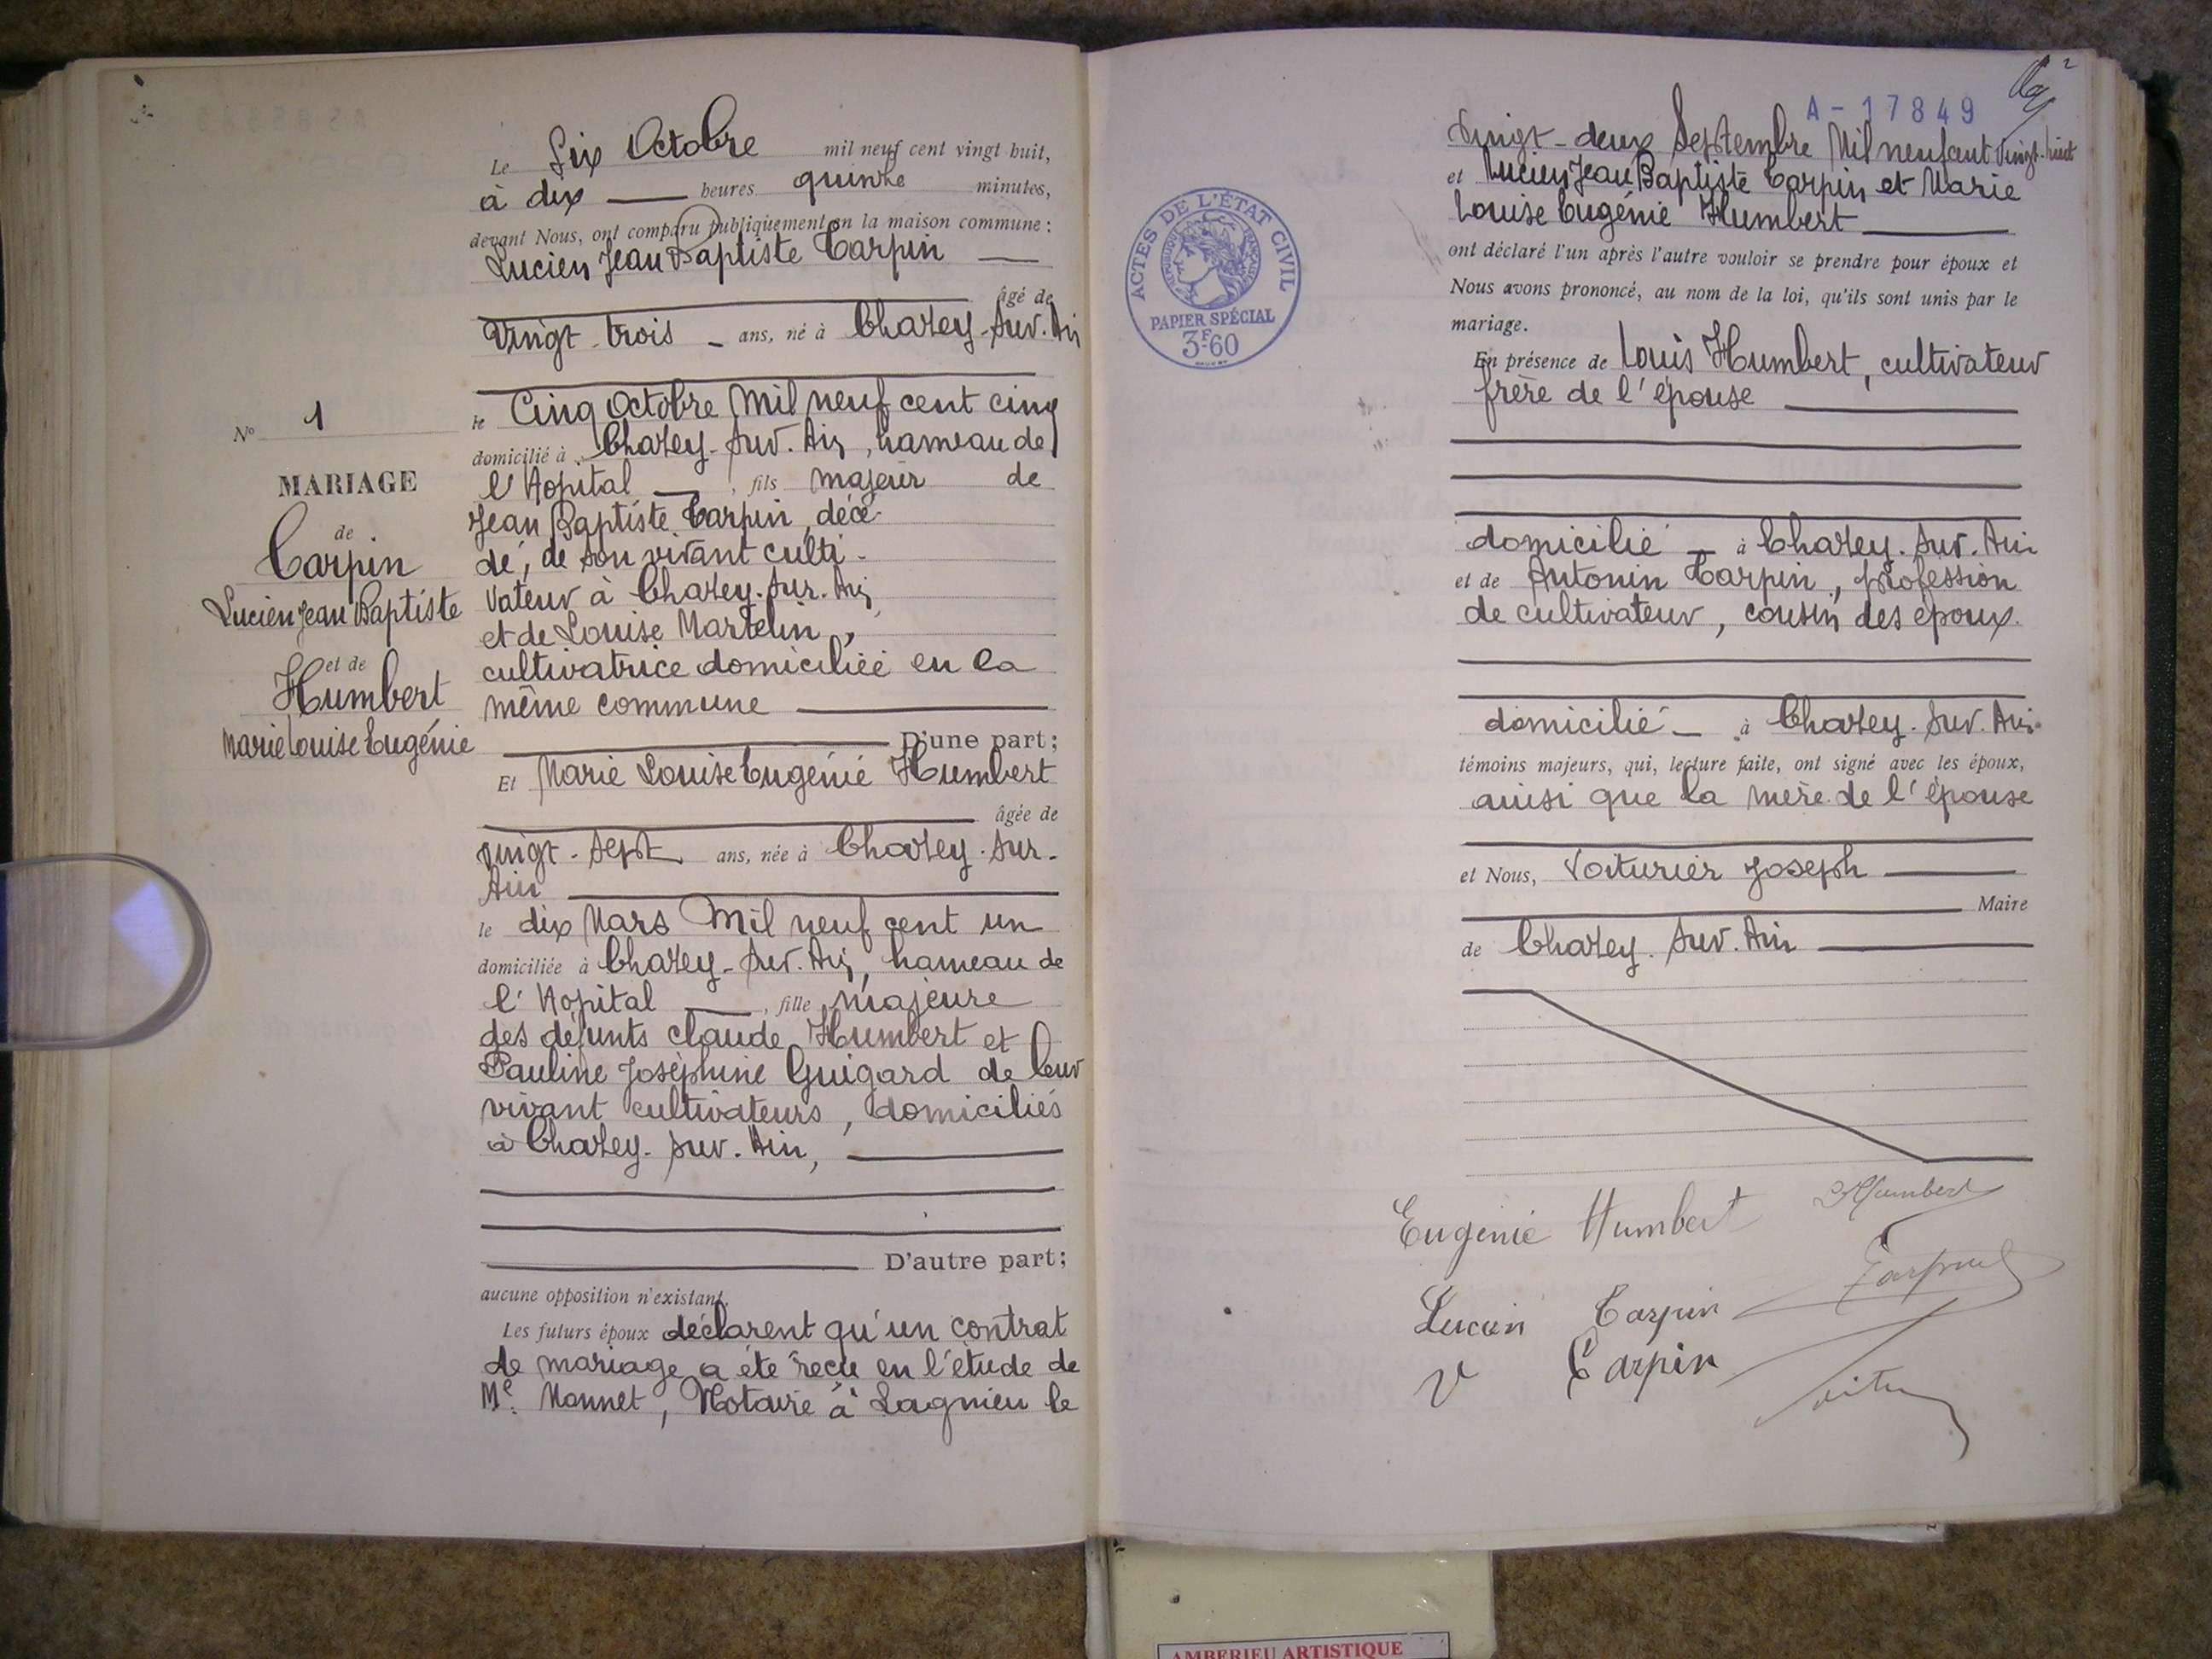 N° 1
MARIAGE
de
Carpin
Lucien Jean Baptiste
et de
Humbert
Marie Louise Eugénie
Le Six Octobre mil neuf cent vingt huit,
à dix heures quinze minutes,
devant Nous, ont comparu publiquement en la maison commune :
Lucien Jean Baptiste Carpin
âgé de
Vingt-trois ans, né à Chazey-sur-Ain
le Cinq Octobre Mil neuf cent cinq
domicilié à Chazey-sur-Ain, hameau de
l'Hopital, fils majeur de
Jean Baptiste Carpin, décé-
dé, de son vivant culti-
vateur à Chazey-sur-Ain
et de Louise Martelin,
cultivatrice domiciliée en la
même commune
D'une part ;
Et Marie Louise Eugénie Humbert
âgée de
vingt-sept ans, née à Chazey-sur-
Ain
le dix Mars Mil neuf cent un
domiciliée à Chazey-sur-Ain, hameau de
l'Hopital, fille majeure
des défunts claude Humbert et
Pauline Joséphine Guigard de leur
vivant cultivateurs, domiciliés
à Chazey-sur-Ain,
D'autre part ;
aucune opposition n'existant.
Les futurs époux déclarent qu'un contrat
de mariage a été reçu en l'étude de
Me. Monnet, Notaire à Lagnieu le
A-17849
2
Vingt-deux Septembre Mil neuf cent vingt-huit
et Lucien Jean Baptiste Carpin et Marie
Louise Eugénie Humbert
ont déclaré l'un après l'autre vouloir se prendre pour époux et
Nous avons prononcé, au nom de la loi, qu'ils sont unis par le
mariage.
En présence de Louis Humbert, cultivateur
frère de l'épouse
domicilié à Chazey-sur-Ain
et de Antonin Carpin, profession
de cultivateur, cousin des époux.
domicilié à Chazey-sur-Ain
témoins majeurs, qui, lecture faite, ont signé avec les époux,
ainsi que la mère de l'épouse
et Nous, Voiturier Joseph
Maire
de Chazey-sur-Ain
ACTES DE L'ÉTAT CIVIL
RÉPUBLIQUE FRANÇAISE
PAPIER SPÉCIAL
3F60
Eugénie Humbert
L Humbert
Lucien Carpin
Carpin
V Carpin
AMBERIEU ARTISTIQUE